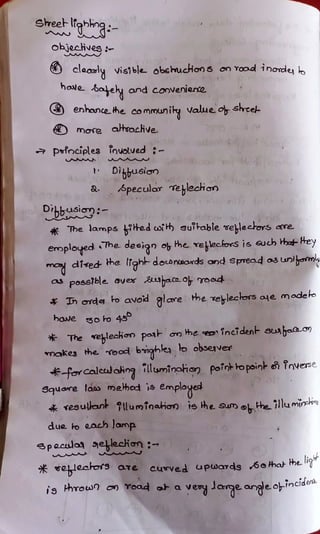 Street lighting :-
objectives :-
* clearly visible obstructions on road inorder to
have safety and convenience
* enhance the community value of street
* more attractive
→ principles involved :-
1. Diffusion
2. Specular reflection
Diffusion :-
* The lamps fitted with suitable reflectors are
employed. The design of the reflectors is such that they
may direct the light downwards and spread as uniformly
as possible over surface of road
* In order to avoid glare the reflectors are made to
have 30 to 45°
* The reflection part on the incident surface on
makes the road brighter to observer
* for calculating illumination point to point or inverse
square law method is employed
* resultant illumination is the sum of the illumination
due to each lamp
Specular reflection :-
* reflectors are curved upwards so that the light
is thrown on road at a very large angle of incidence